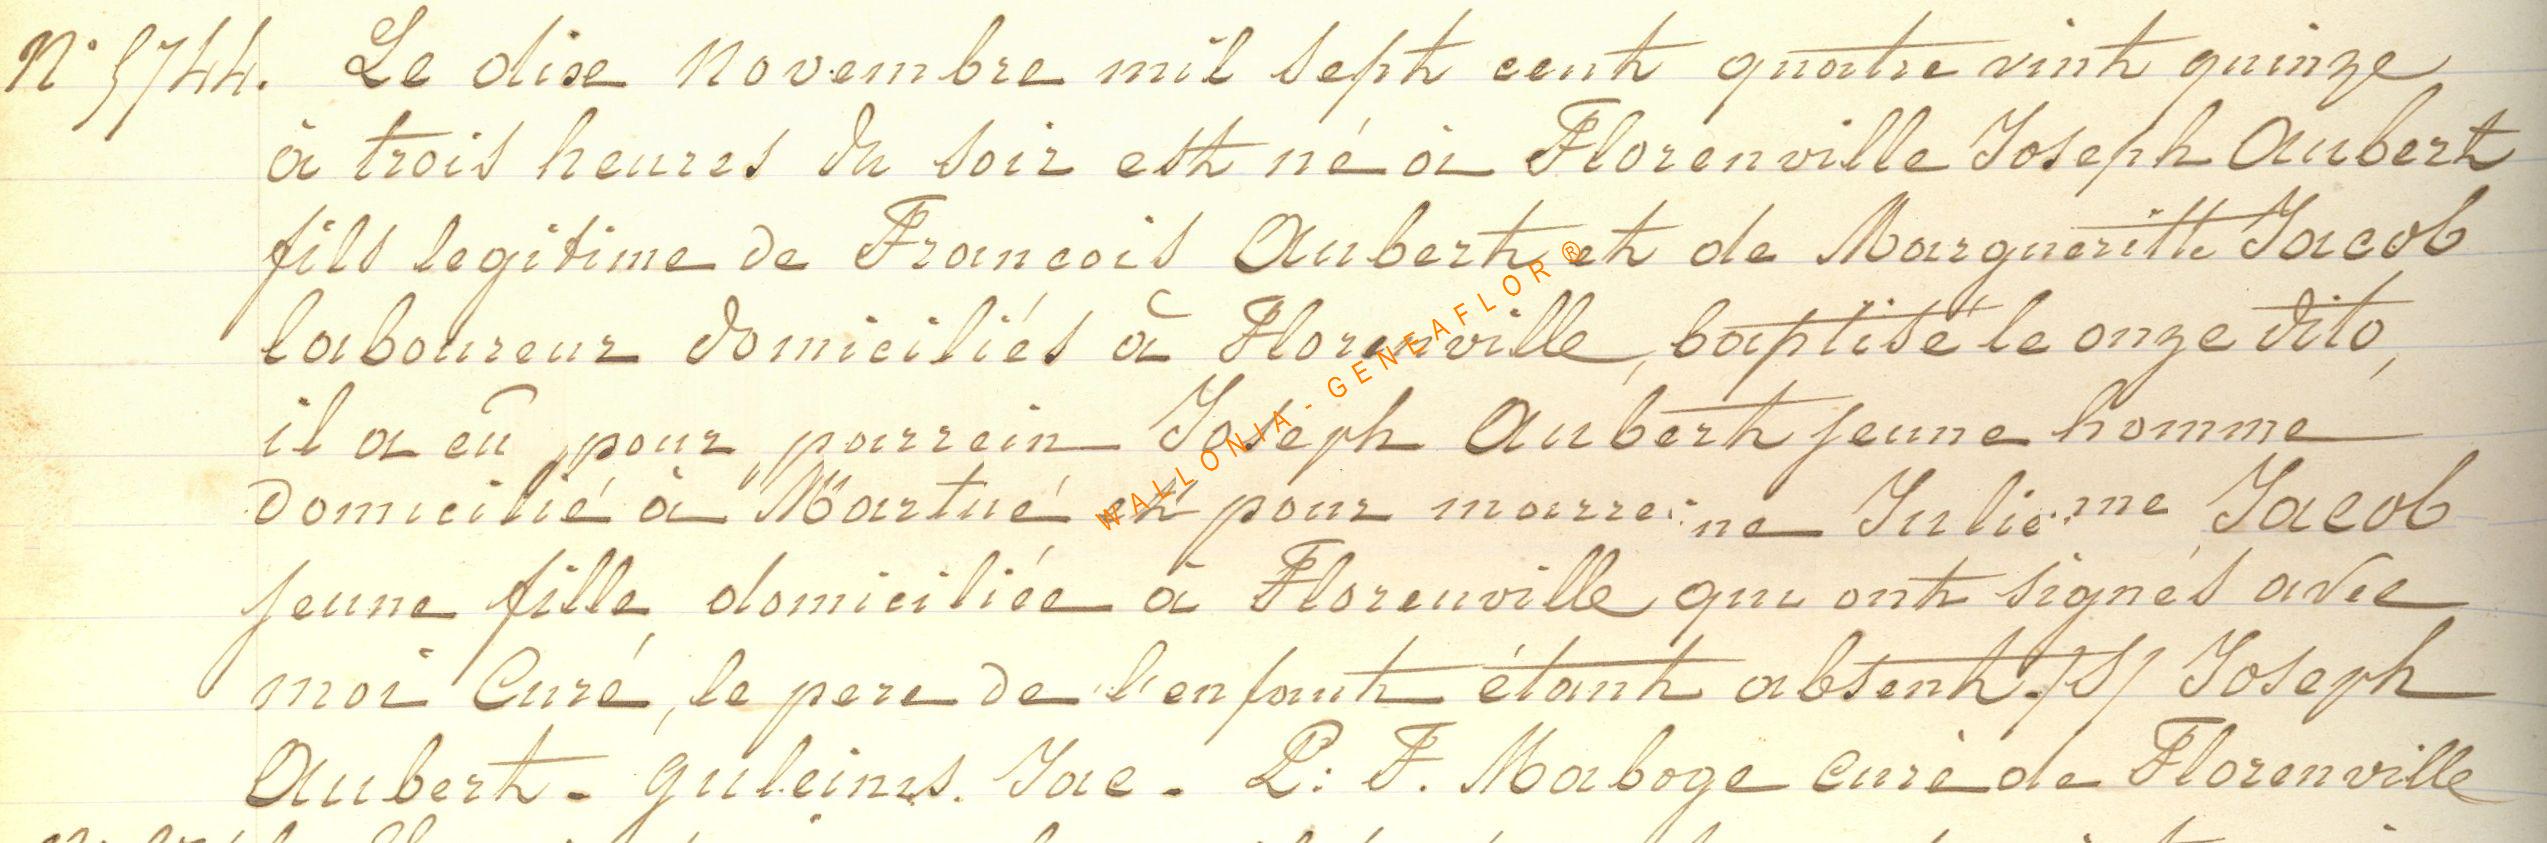 N° 5744. Le dixe Novembre mil sept cent quatre vint quinze
à trois heures du soir est né à Florenville Joseph Aubert
fils legitime de Francois Aubert et de Margueritte Jacob
laboureur domiciliés à Florenville, baptisé le onze dito,
il a eû pour parrein Joseph Aubert jeune homme
domicilié à Martué et pour marreine Julienne Jacob
jeune fille domiciliée à Florenville qui ont signés avec
moi Curé, le pere de l'enfant étant absent. /S/ Joseph
Aubert - guleinns. Jac - P: F. Maboge curé de Florenville
WALLONIA - GENEAFLOR ®